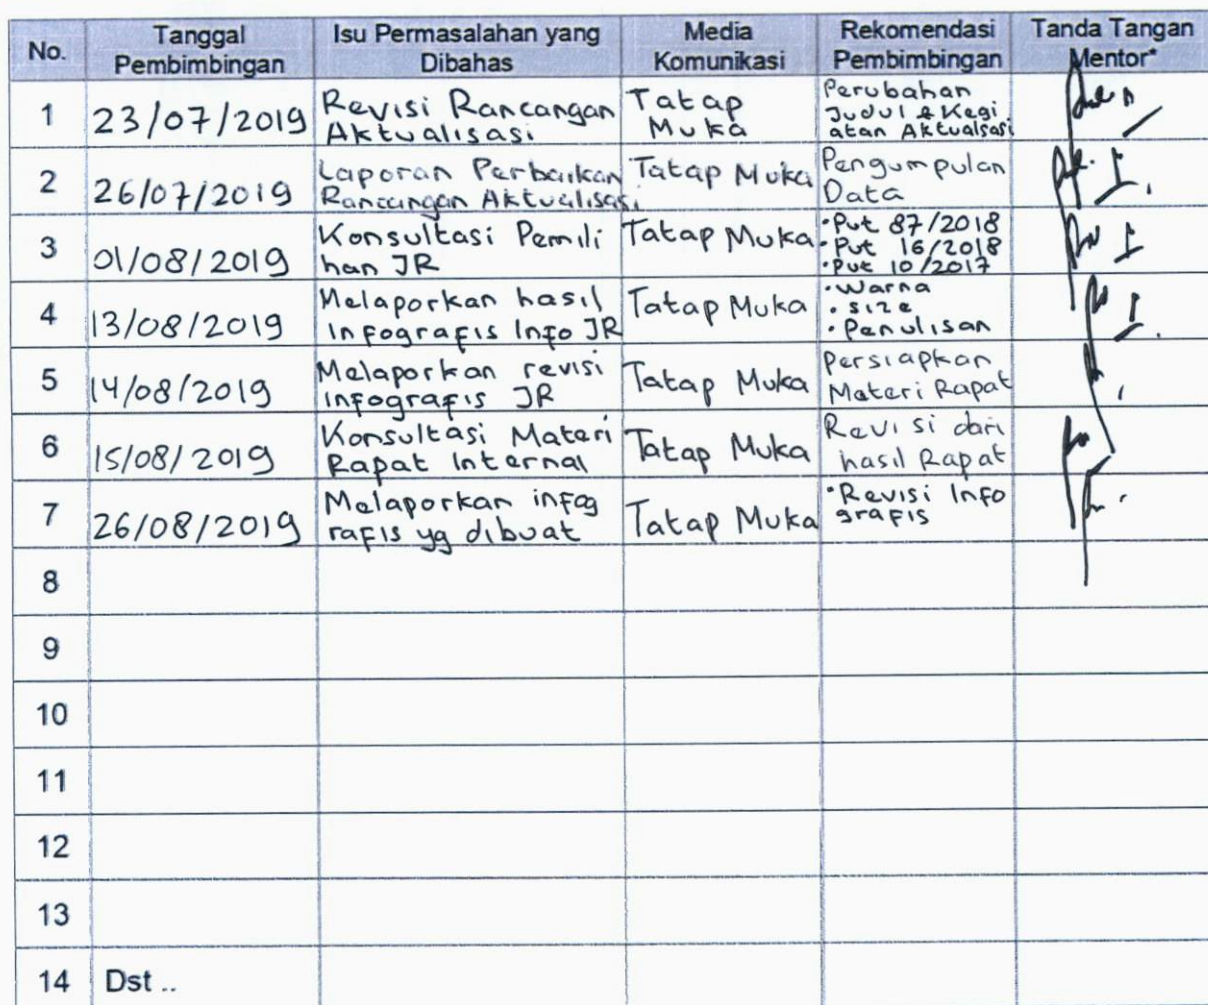 No. Tanggal Pembimbingan Isu Permasalahan yang Dibahas Media Komunikasi Rekomendasi Pembimbingan Tanda Tangan Mentor*
1 23/07/2019 Revisi Rancangan Aktualisasi Tatap Muka Perubahan Judul & Kegi atan Aktualsasi
2 26/07/2019 Laporan Perbaikan Rancangan Aktualisasi Tatap Muka Pengumpulan Data
3 01/08/2019 Konsultasi Pemili han JR Tatap Muka •Put 87/2018 •Put 16/2018 •Put 10/2017
4 13/08/2019 Melaporkan hasil Infografis Info JR Tatap Muka •Warna •size •Penulisan
5 14/08/2019 Melaporkan revisi infografis JR Tatap Muka Persiapkan Materi Rapat
6 15/08/2019 Konsultasi Materi Rapat Internal Tatap Muka Revisi dari hasil Rapat
7 26/08/2019 Melaporkan infog rafis yg dibuat Tatap Muka •Revisi Info grafis
8
9
10
11
12
13
14 Dst ..